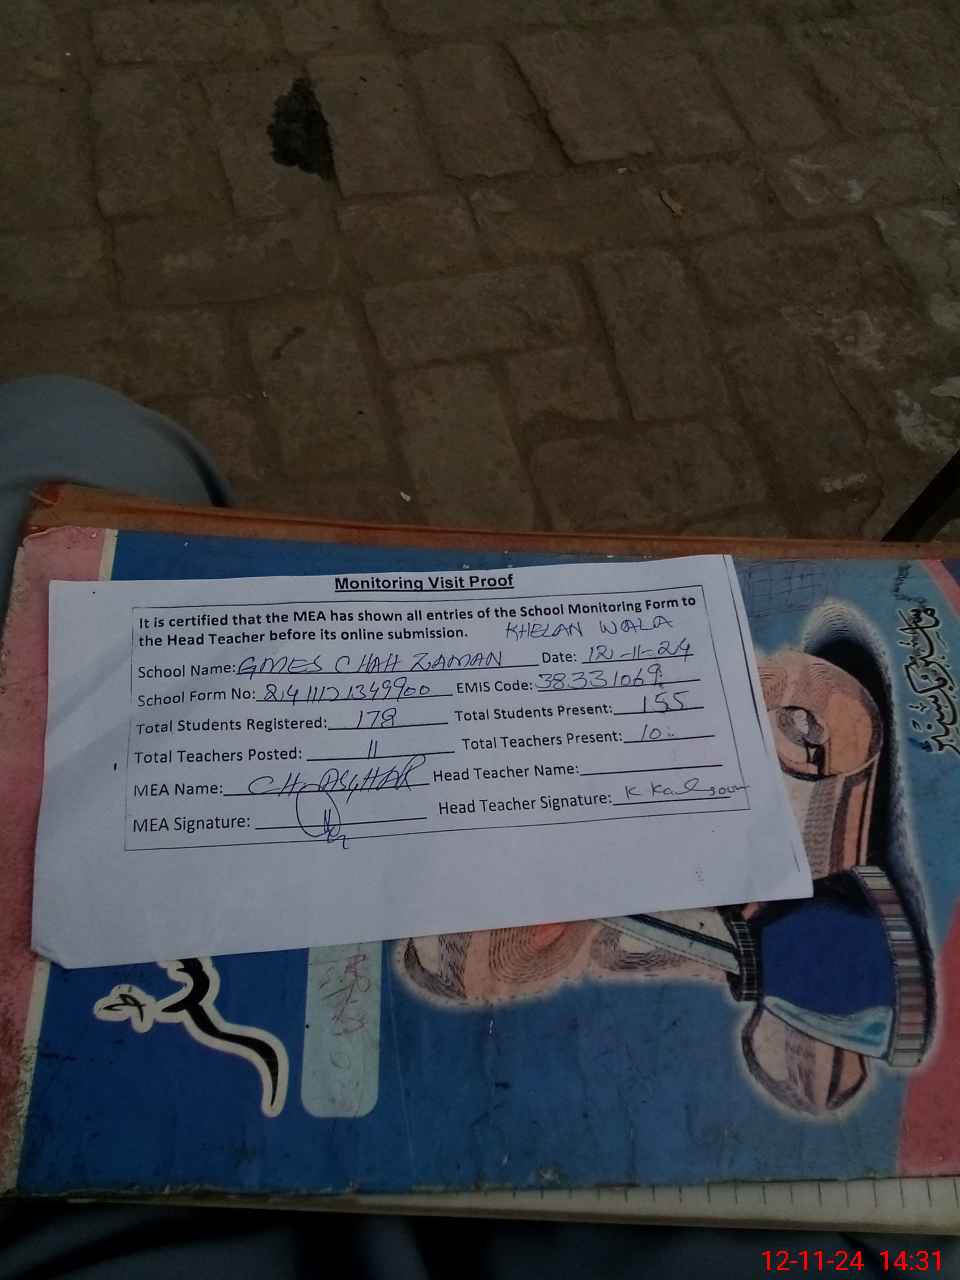 Monitoring Visit Proof
It is certified that the MEA has shown all entries of the School Monitoring Form to
the Head Teacher before its online submission. KHELAN WALA
School Name: GMES CHAH ZAMAN Date: 12-11-24
School Form No: EMIS Code: 38331069
Total Students Registered: 178 Total Students Present: 155
Total Teachers Posted: 11 Total Teachers Present: 10
MEA Name: CH. ASGHAR Head Teacher Name:
MEA Signature: Head Teacher Signature:
12-11-24 14:31